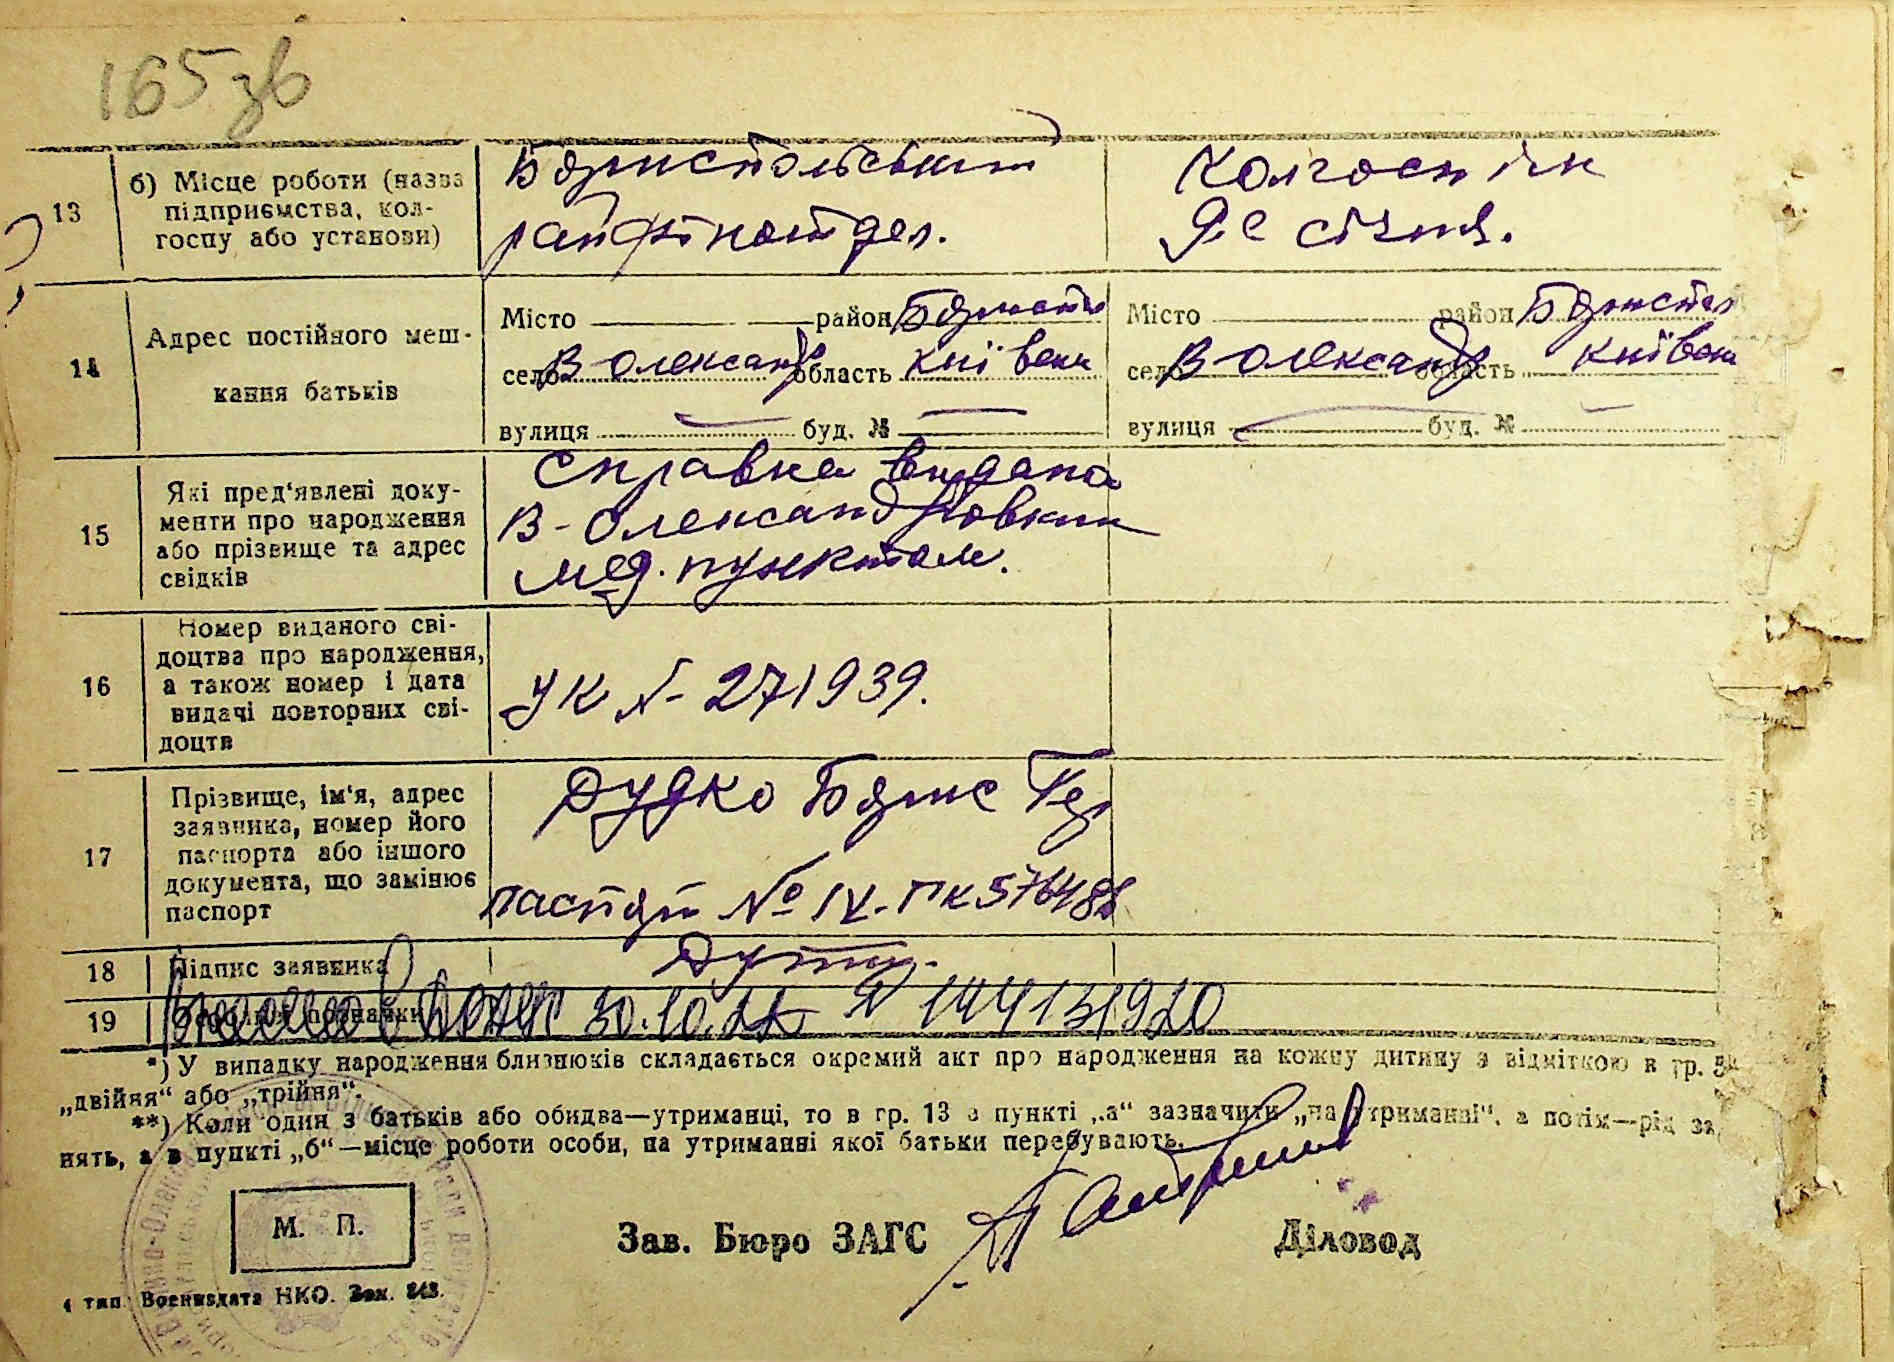 165 зв
13
б) Місце роботи (назва
підприємства, кол-
госпу або установи)
Бориспольський
райфінотдел.
Колгоспник
9е січня.
14
Адрес постійного меш-
кання батьків
Місто район Борисп
село В Олександр область Київськ
вулиця — буд. № —
Місто район Борисп
село В Олександр область Київськ
вулиця — буд. № —
15
Які пред'явлені доку-
менти про народження
або прізвище та адрес
свідків
Справка видана
В-Олександровким
мед. пунктом.
16
Номер виданого сві-
доцтва про народження,
а також номер і дата
видачі повторних сві-
доцтв
УК № 271939.
17
Прізвище, ім'я, адрес
заявника, номер його
паспорта або іншого
документа, що замінює
паспорт
Дудко Борис
паспорт № IV-ПК 576488
18
Підпис заявника
19
30.10. № 144131920
*) У випадку народження близнюків складається окремий акт про народження на кожну дитину з відміткою в гр. 5
„двійня“ або „трійня“.
**) Коли один з батьків або обидва—утриманці, то в гр. 13 в пункті „а“ зазначити „на утриманні“, а потім—рід за
нять, а в пункті „б“—місце роботи особи, на утриманні якої батьки перебувають.
М. П.
Зав. Бюро ЗАГС
Діловод
4 тип. Воениздата НКО. Зак. 843.